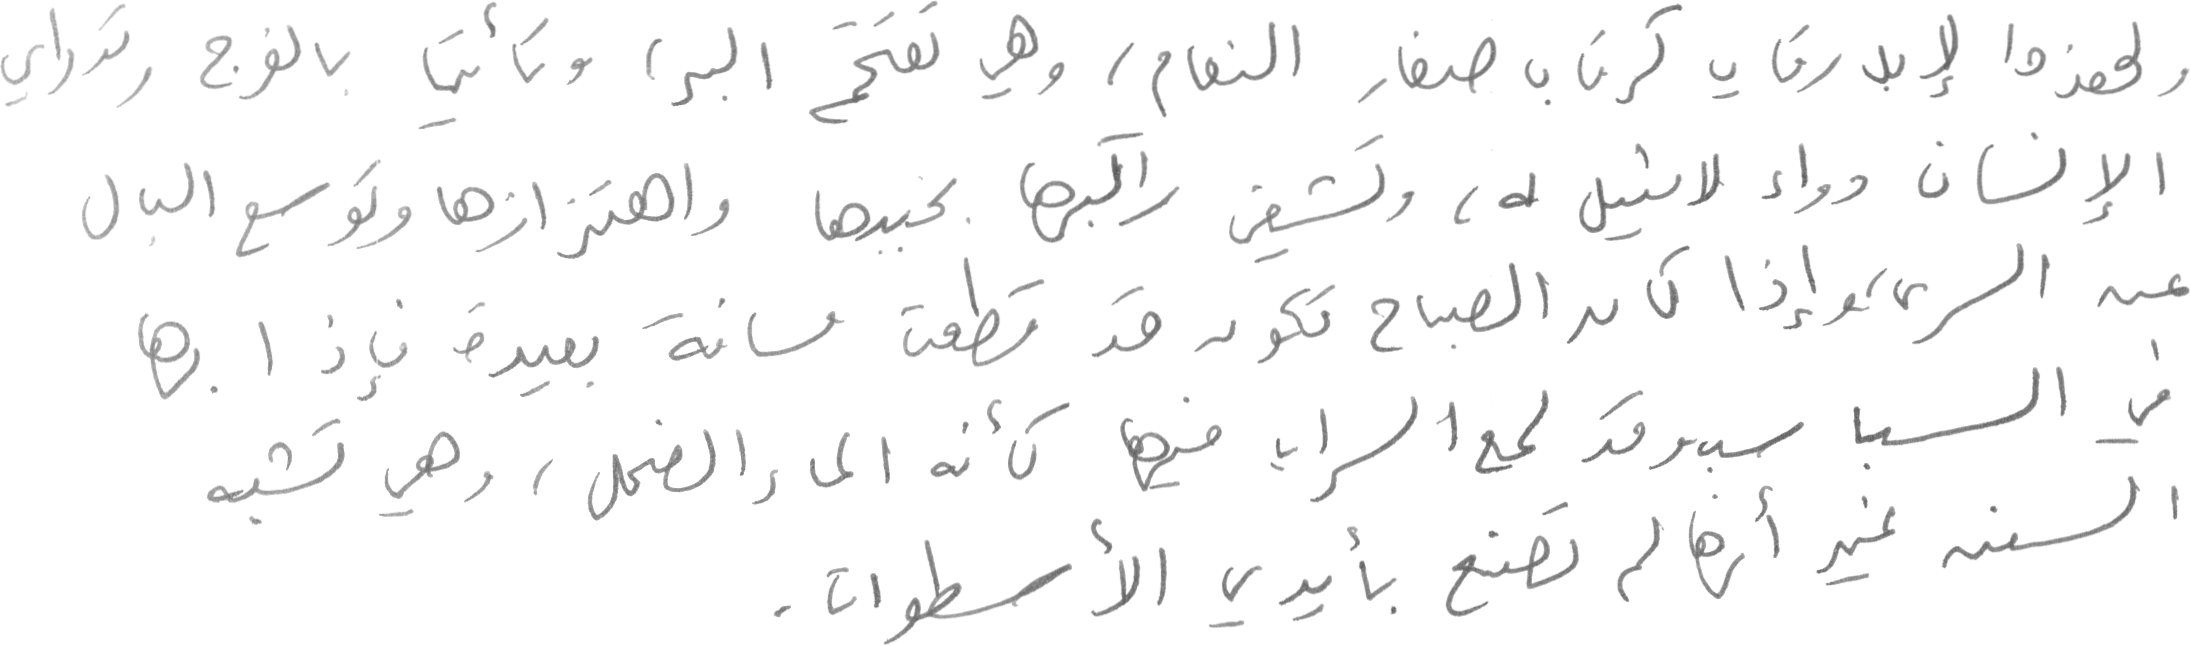 ولهذه الإبل رقاب كرقاب صغار النعام، وهي تقتحم البر، وتأتينا بالفرج وتداوي
الإنسان دواء لا مثيل له، وتشفي راكبها بخببها واهتزازها وتوسع البال
عند السرى، وإذا كان الصباح تكون قد قطعت مسافة بعيدة فإذا بها
في السباسب وقد لمع السراب فيها كأنه الماء الضحل، وهي تشبه
السفن غير أنها لم تصنع بأيدي الأسطوات.